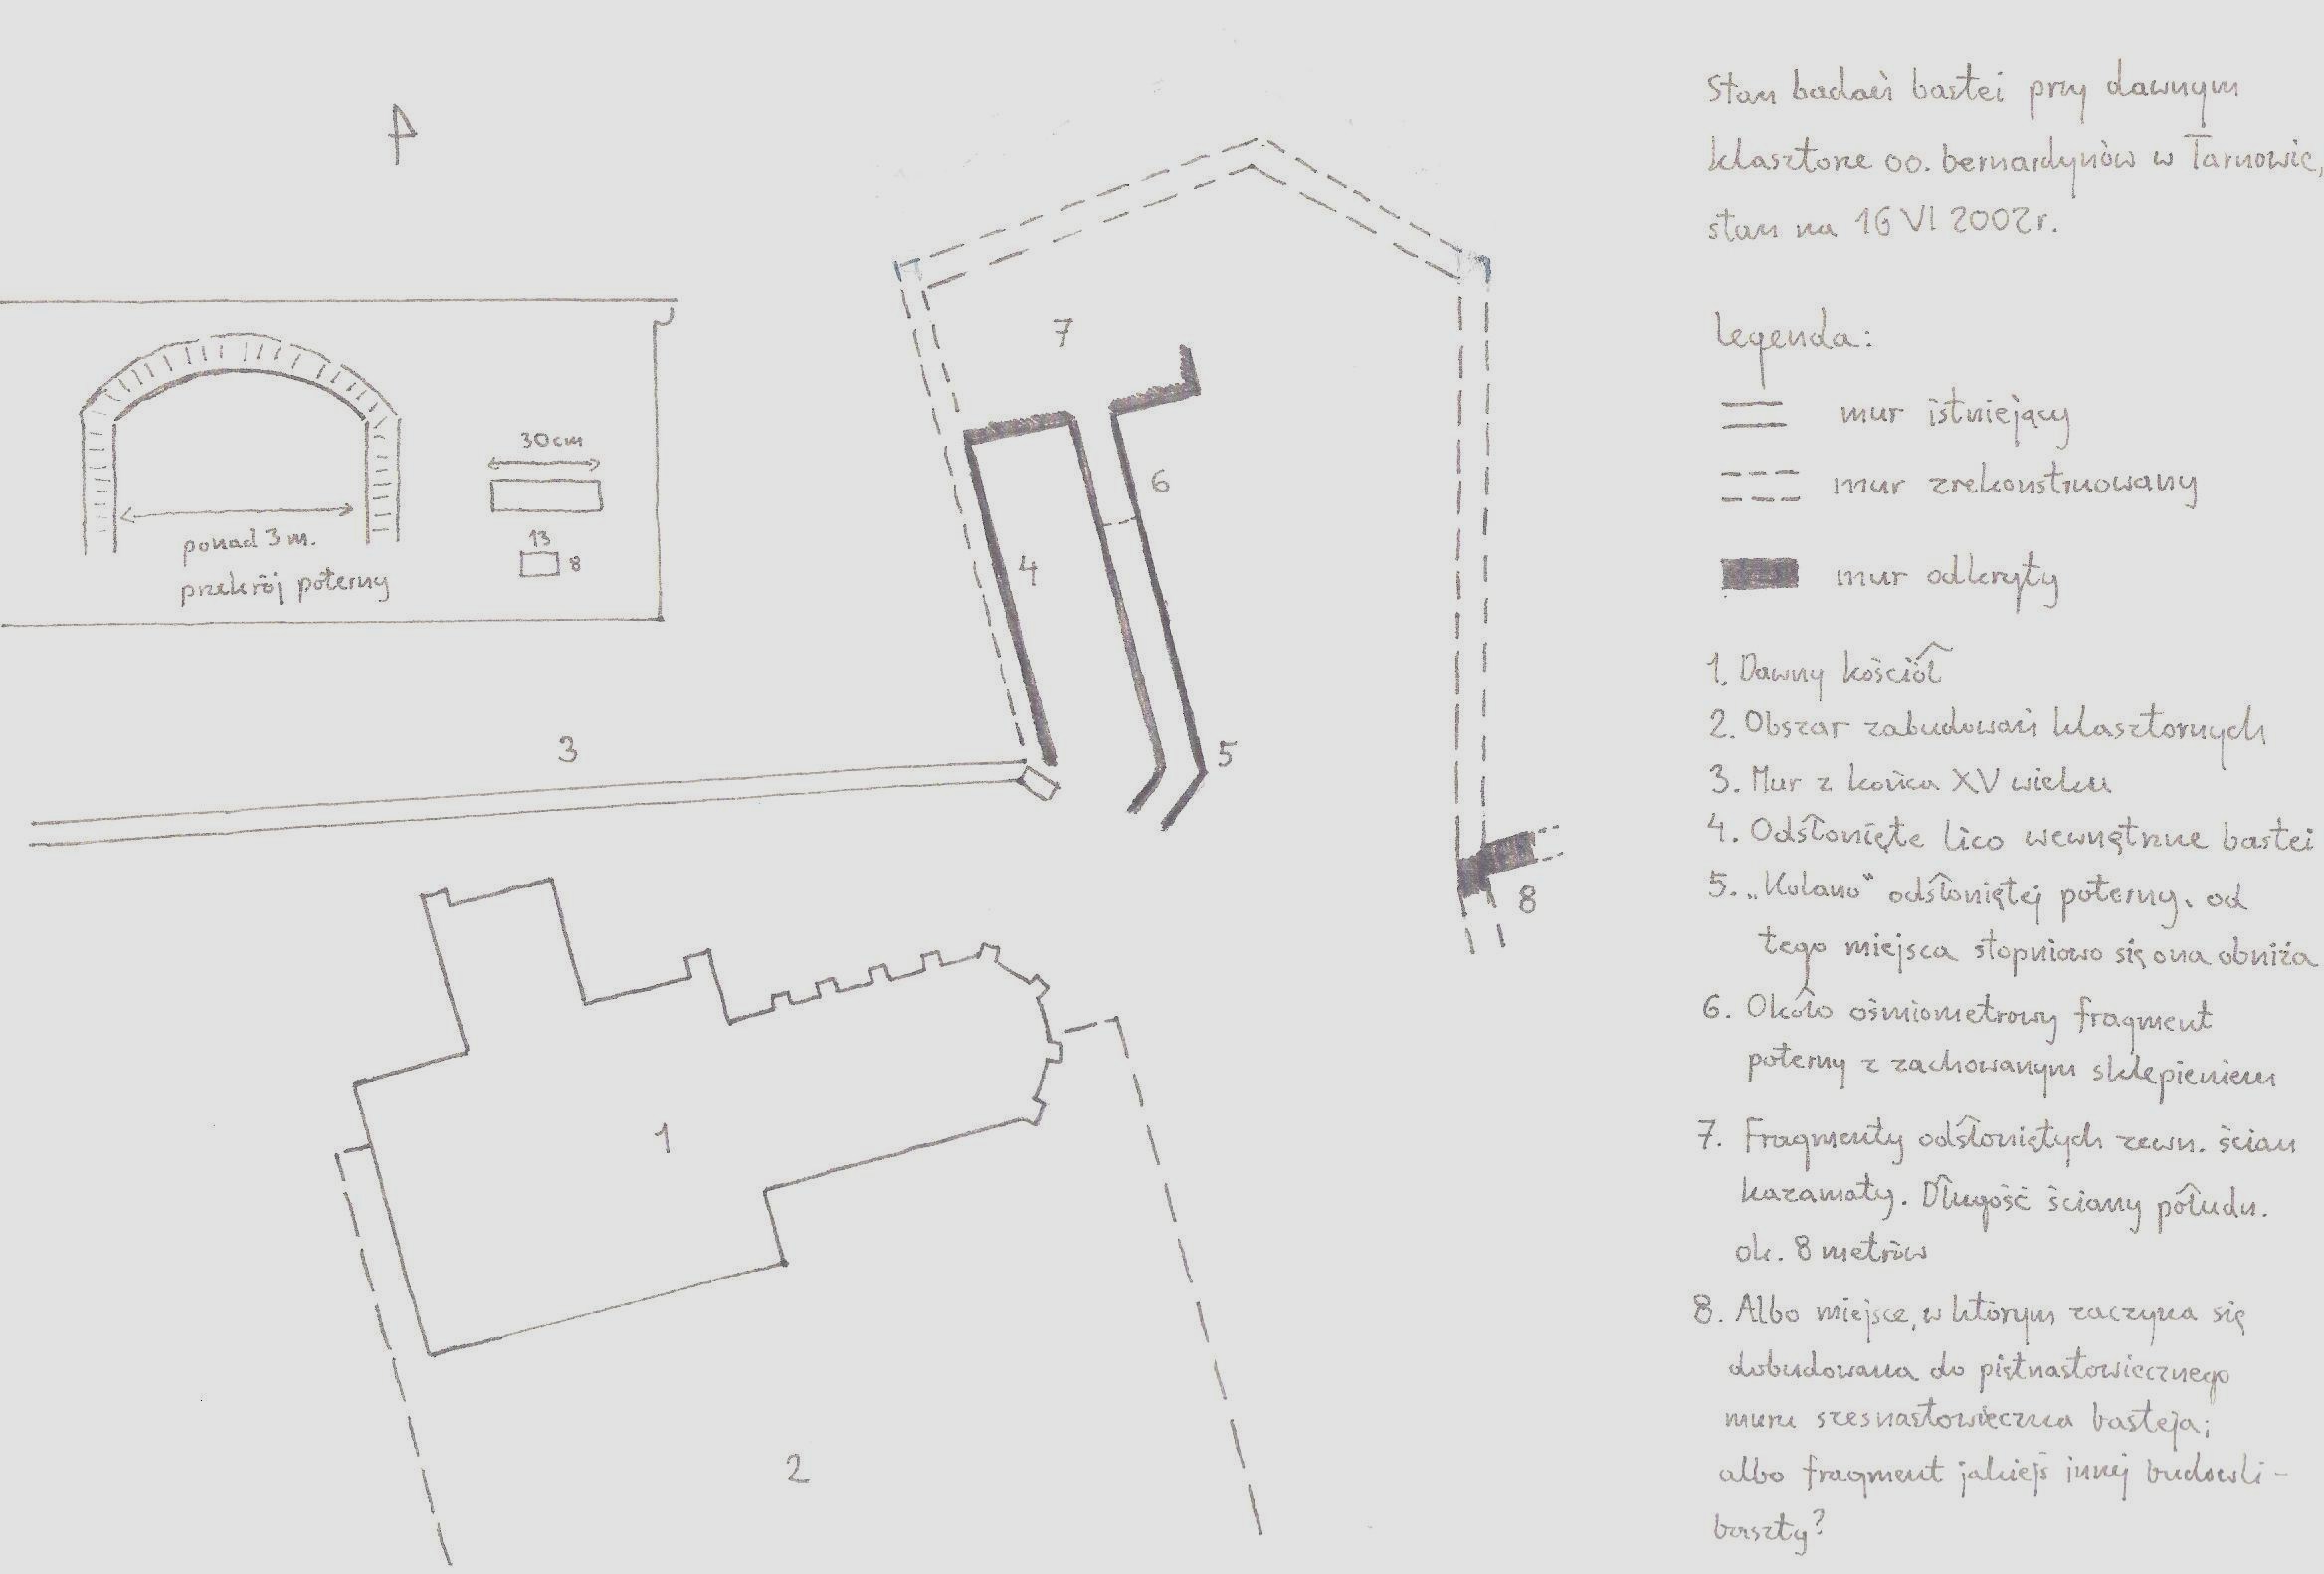 Stan badań bastei przy dawnym
klasztorze oo. bernardynów w Tarnowie,
stan na 16 VI 2002r.
Legenda:
mur istniejący
mur zrekonstruowany
mur odkryty
1. Dawny kościół
2. Obszar zabudowań klasztornych
3. Mur z końca XV wieku
4. Odsłonięte lico wewnętrzne bastei
5. „Kolano” odsłoniętej poterny. od
tego miejsca stopniowo się ona obniża
6. Około ośmiometrowy fragment
poterny z zachowanym sklepieniem
7. Fragmenty odsłoniętych zewn. ścian
kazamaty. Długość ściany połudn.
ok. 8 metrów
8. Albo miejsce, w którym zaczyna się
dobudowana do piętnastowiecznego
muru szesnastowieczna basteja;
albo fragment jakiejś innej budowli -
baszty?
30cm
13
8
ponad 3 m.
przekrój poterny
7
6
4
3
5
8
1
2